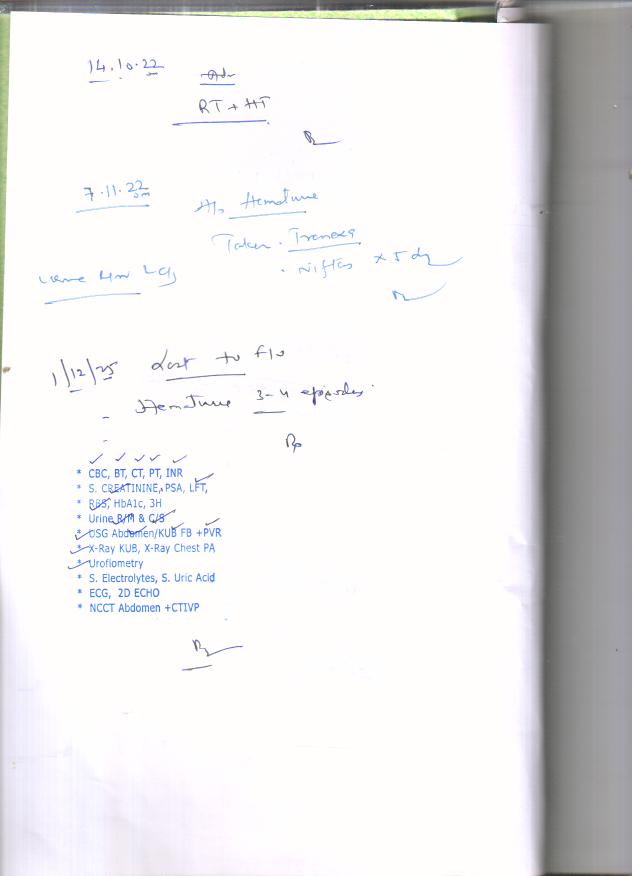 14.10.22
Adv
RT + HT
7.11.22
H/o Hematurie
Taken . Tranexa
. Niftas x 5 dy
1/12/25 Lost to f/u
- Hematurie 3-4 episodes
-
* CBC, BT, CT, PT, INR
* S. CREATININE, PSA, LFT,
* RBS, HbA1c, 3H
* Urine R/M & C/S
* USG Abdomen/KUB FB +PVR
* X-Ray KUB, X-Ray Chest PA
* Uroflometry
* S. Electrolytes, S. Uric Acid
* ECG, 2D ECHO
* NCCT Abdomen +CTIVP